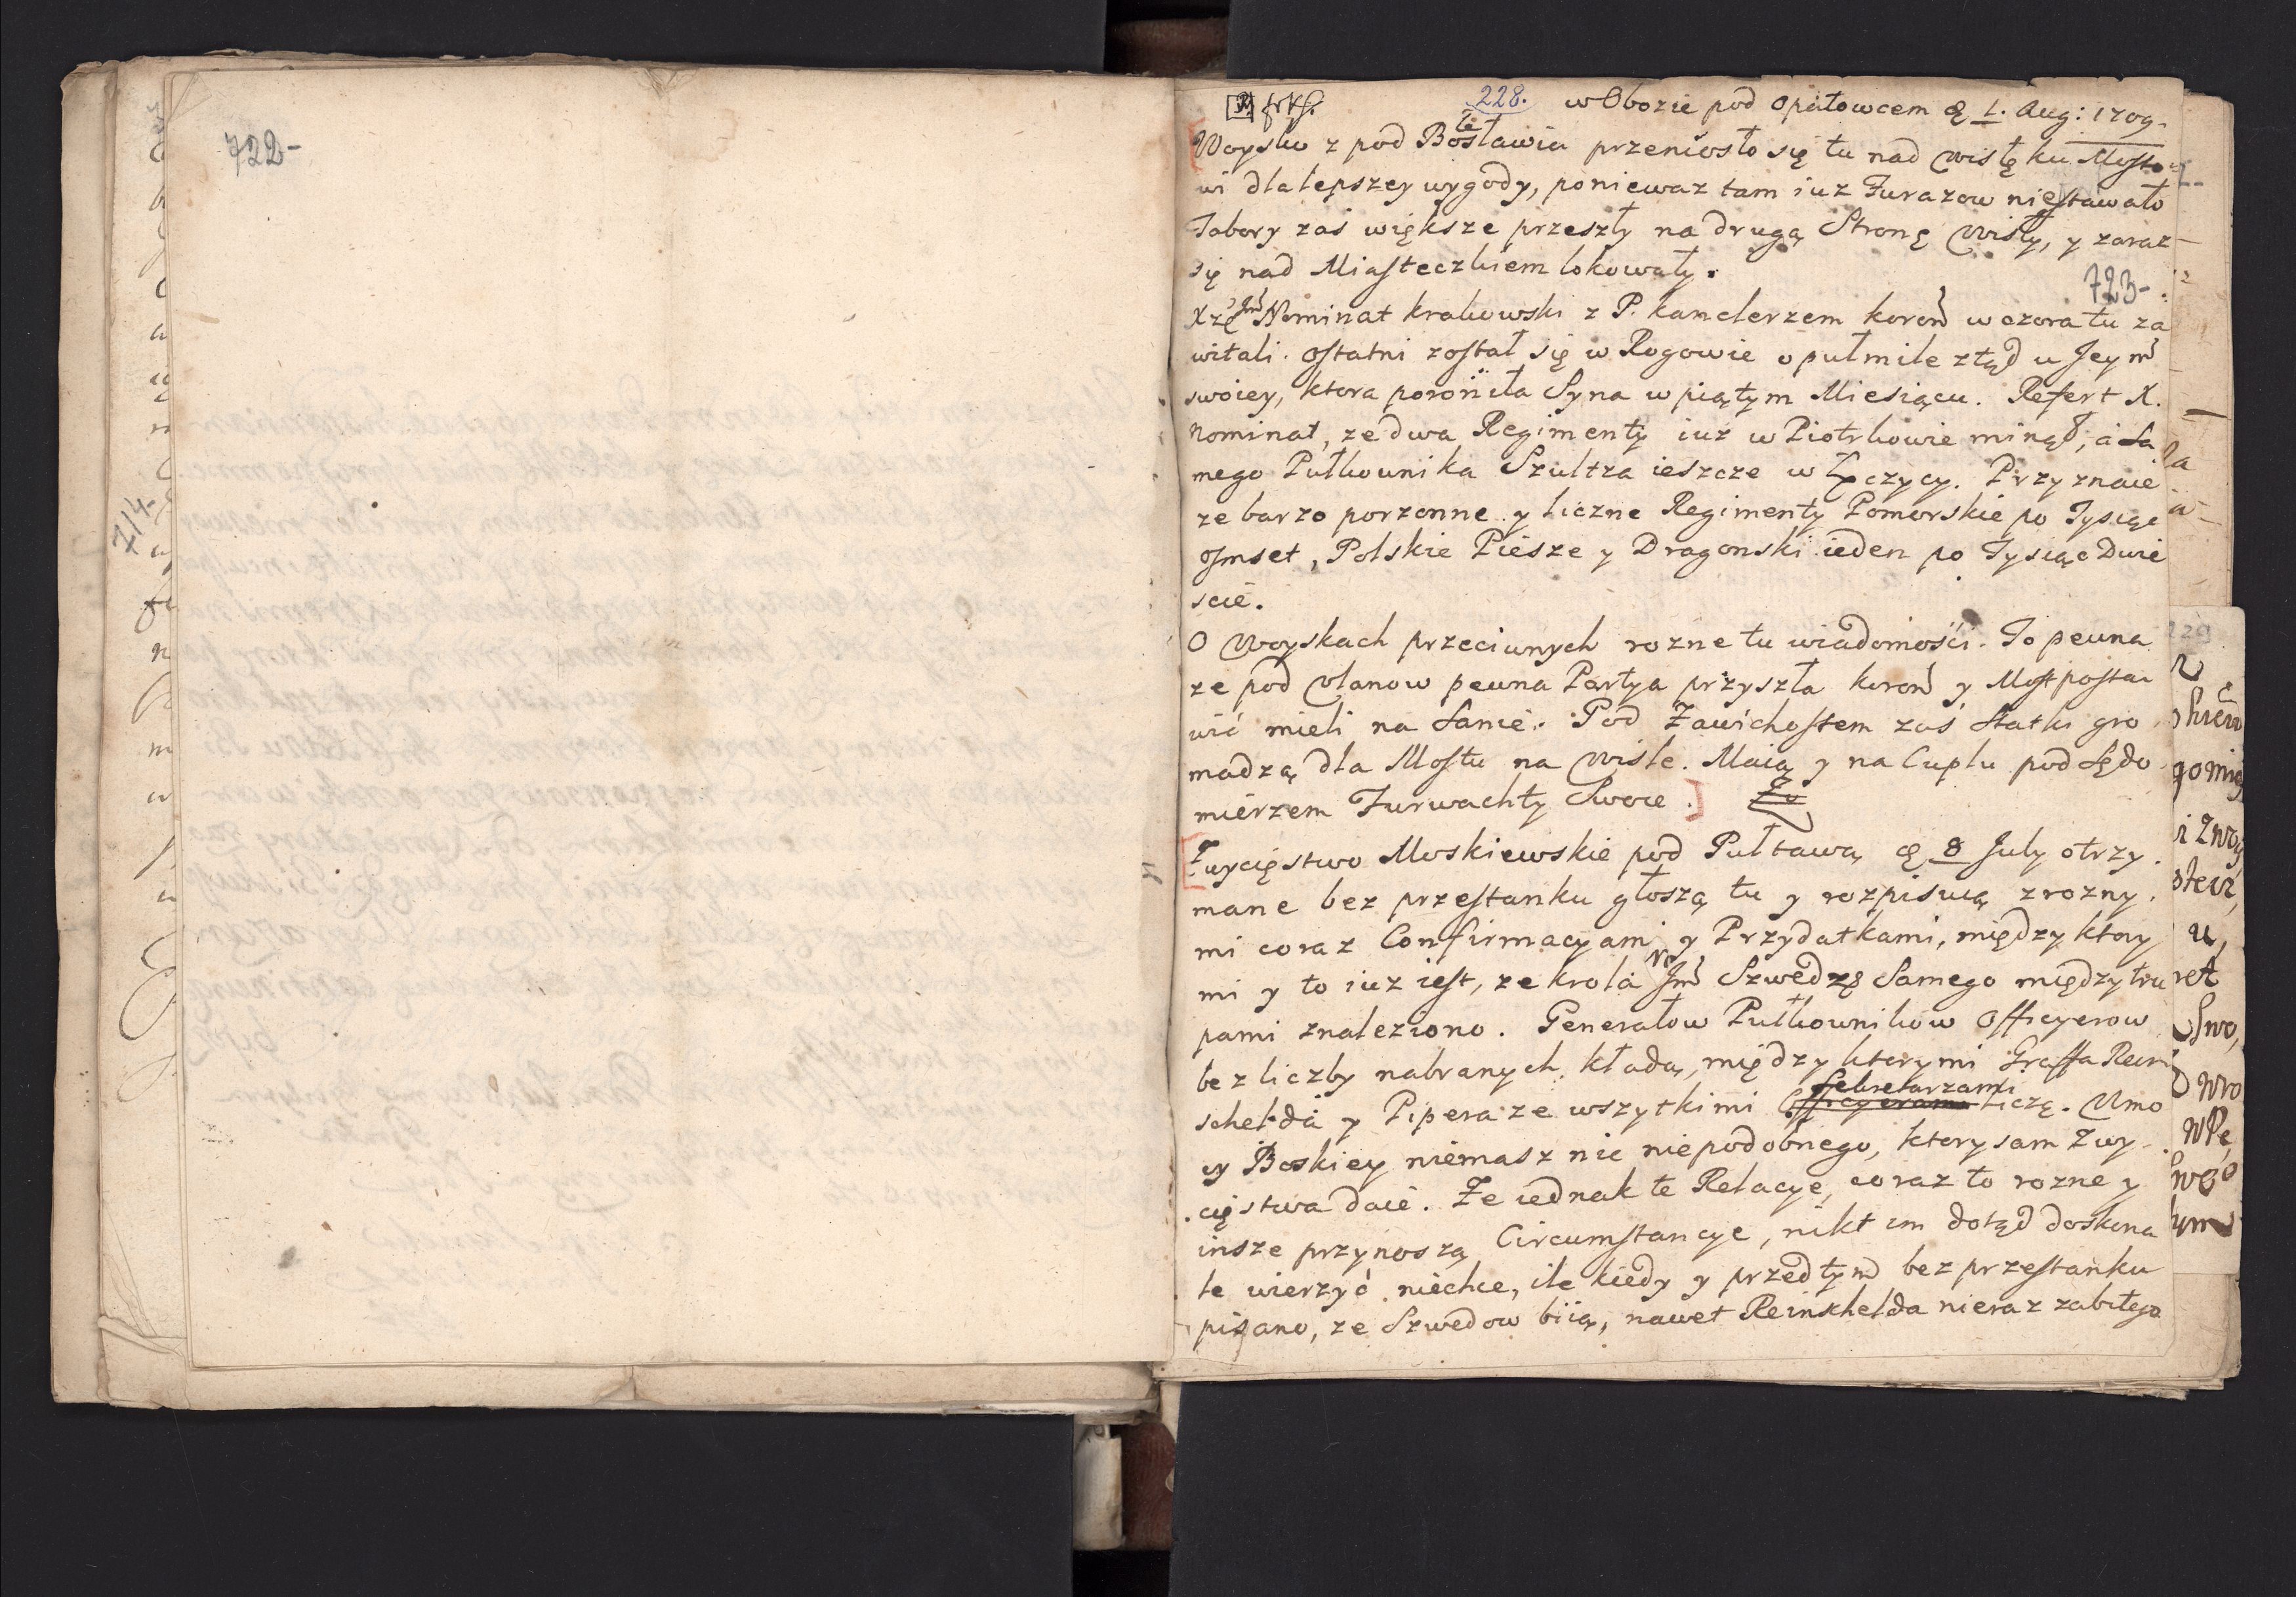 722-
714-
228. w Obozie pod Opatowcem 1. Aug: 1709.
Woysko z pod Bosławia przeniosło się tu nad Wisłę ku Mosto
wi dla lepszey wygody, poniewaz tam iuz Furazow niestawało
Tabory zaś większe przeszły na drugą Stronę Wisły, y zaraz
się nad Miasteczkiem lokowały.
723-
Xżę Jm̃ Nominat krakowski z P. kanclerzem koroñ wczora tu za
witali. Ostatni został się w Rogowie o puł mile ztąd u Jeym̃
swoiey, ktora poroniła Syna w piątym Miesiącu. Refert X.
Nominat, ze dwa Regimenty iuz w Piotrkowie minął, a sa
mego Pułkownika Szultza ieszcze w Łęczycy. Przyznaie
ze barzo porzonne y liczne Regimenty Pomorskie po Tysiąc
Osmset, Polskie Piesze y Dragonski ieden po Tysiąc Dwie
scie.
O Woyskach przeciwnych rozne tu wiadomości. To pewna
ze pod Ulanow pewna Partya przyszła koroñ y Most posta
wić mieli na Sanie. Pod Zawichostem zaś Statki gro
madzą dla Mostu na Wisle. Maią y na Cuplu pod Sędo
mierzem Furwachty Swoie. Zw
Zwycięstwo Moskiewskie pod Pułtawą 8 July otrzy
mane bez przestanku głoszą tu y rozpisuią z rozny
mi coraz Confirmacyami y Przydatkami, między ktory
mi y to iuz iest, ze krola Jm̃ Szwedz Samego między tru
pami znaleziono. Generałow Pułkownikow Officyerow
bez liczby nabranych kładą, między ktorymi Graffa Rein
schelda y Pipera ze wszytkimi Officyerami Sekretarzami liczą. Umo
cy Boskiey niemasz nic niepodobnego, ktory sam Zwy
cięstwa daie. Ze iednak te Relacye, coraz to rozne y
insze przynoszą Circumstancye, nikt im dotąd doskona
le wierzyć niechce, ile kiedy y przedtym bez przestanku
pisano, ze Szwedow biią, nawet Reinskhelda nieraz zabitego